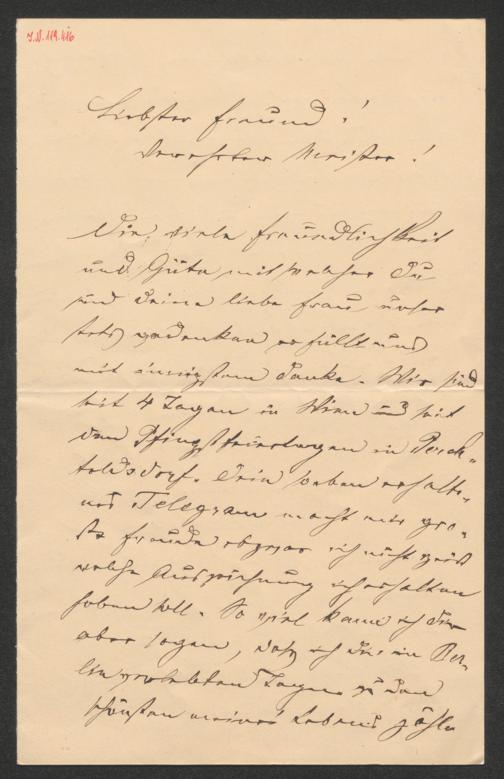 I.N. 119.416
Liebster Freund!
Verehrter Meister!
Die viele Freundlichkeit
und Güte mit welcher Du
und Deine liebe Frau unser
stets gedenken erfüllt uns
mit innigstem Danke. Wir sind
seit 4 Tagen in Wien und seit
den Pfingstfeiertagen in Perch-
toldsdorf. Dein soeben erhalte-
nes Telegram macht mir gro-
ße Freude obzwar ich nicht weiß
welche Auszeichnung ich erhalten
haben soll. So viel kann ich Dir
aber sagen, daß ich die in Ber-
lin verlebten Tage zu den
schönsten meines Lebens zähle